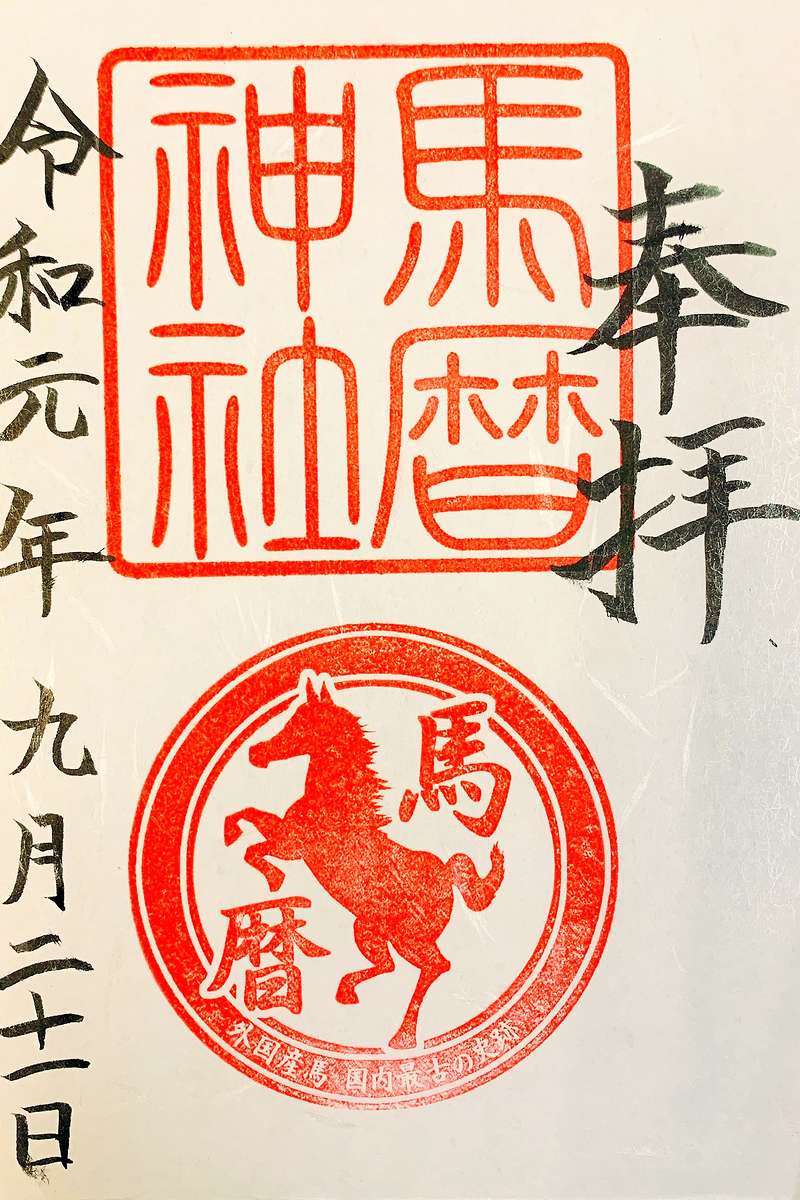 奉拝
馬暦
神社
馬
暦
外国産馬 国内最古の史跡
令和元年九月二十一日